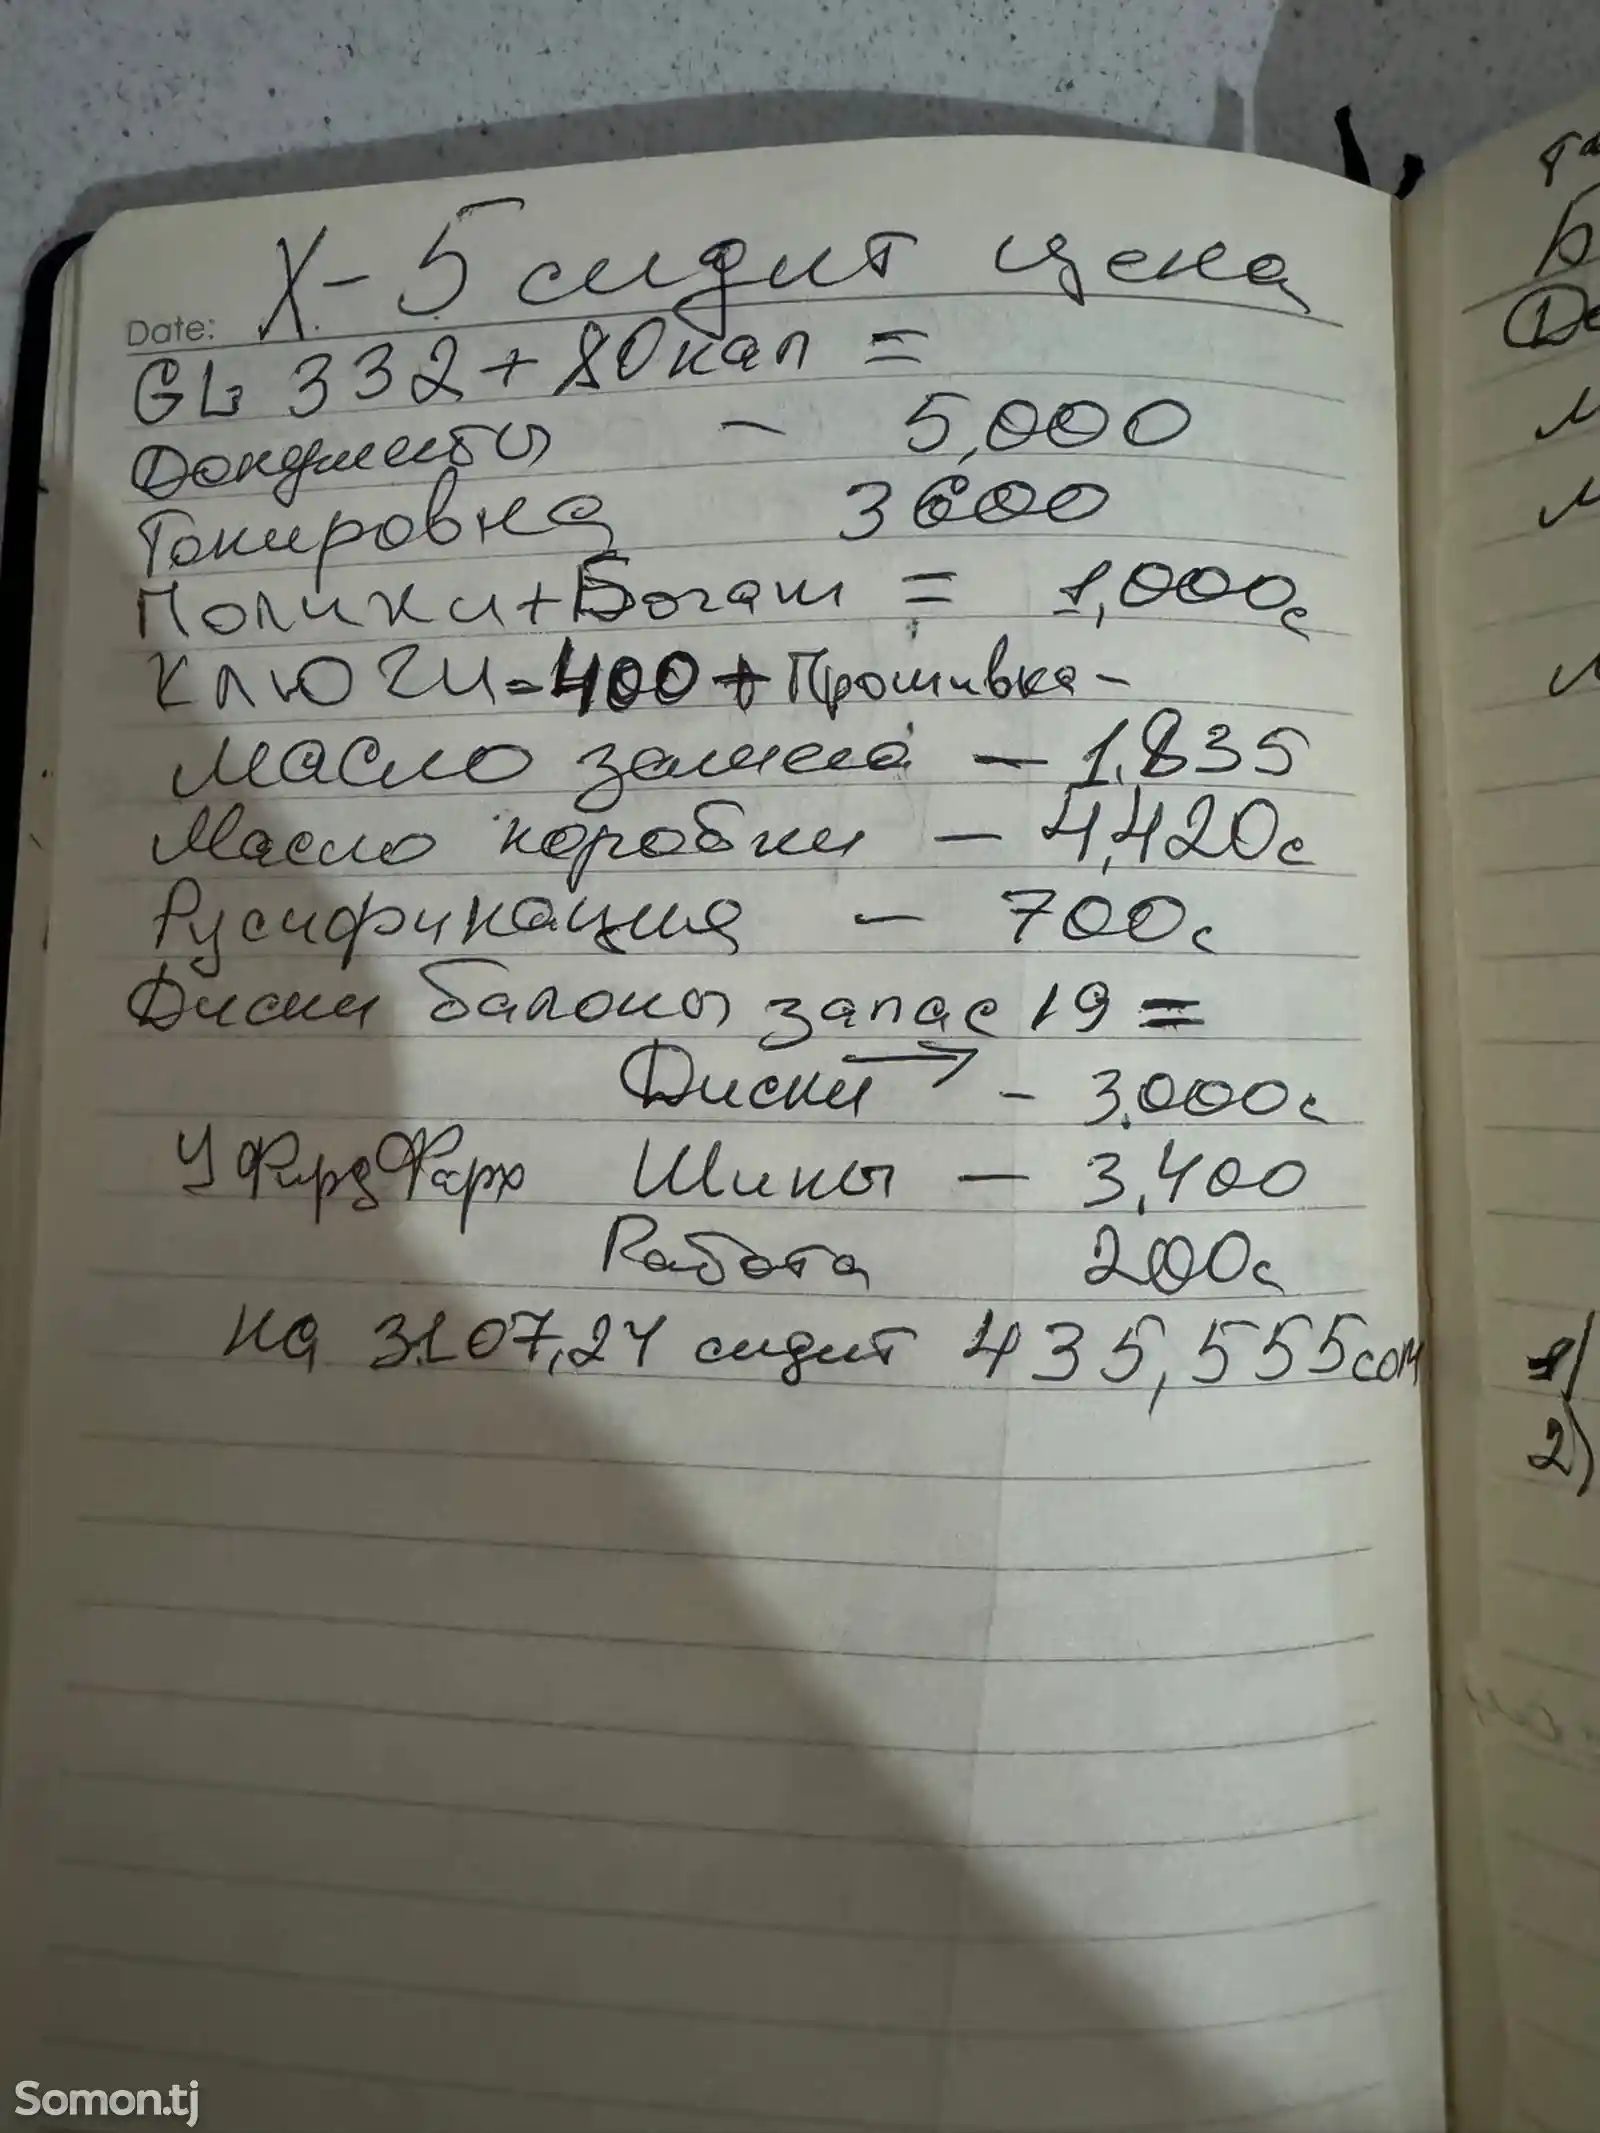 X-5 сидит цена
Date:
GL 332 + 80кап =
Документы - 5,000
Тонировка 3600
Полики + Богаш = 1,000с
Ключи = 400 + Прошивка -
Масло замена - 1.835
Масло коробки - 4,420с
Русификация - 700с
Диски балоны запас 19 =
Диски → - 3.000с
У Фирдфарх Шины - 3,400
Работа 200с
на 31.07,24 сидит 435,555сом
1)
2)
Somon.tj